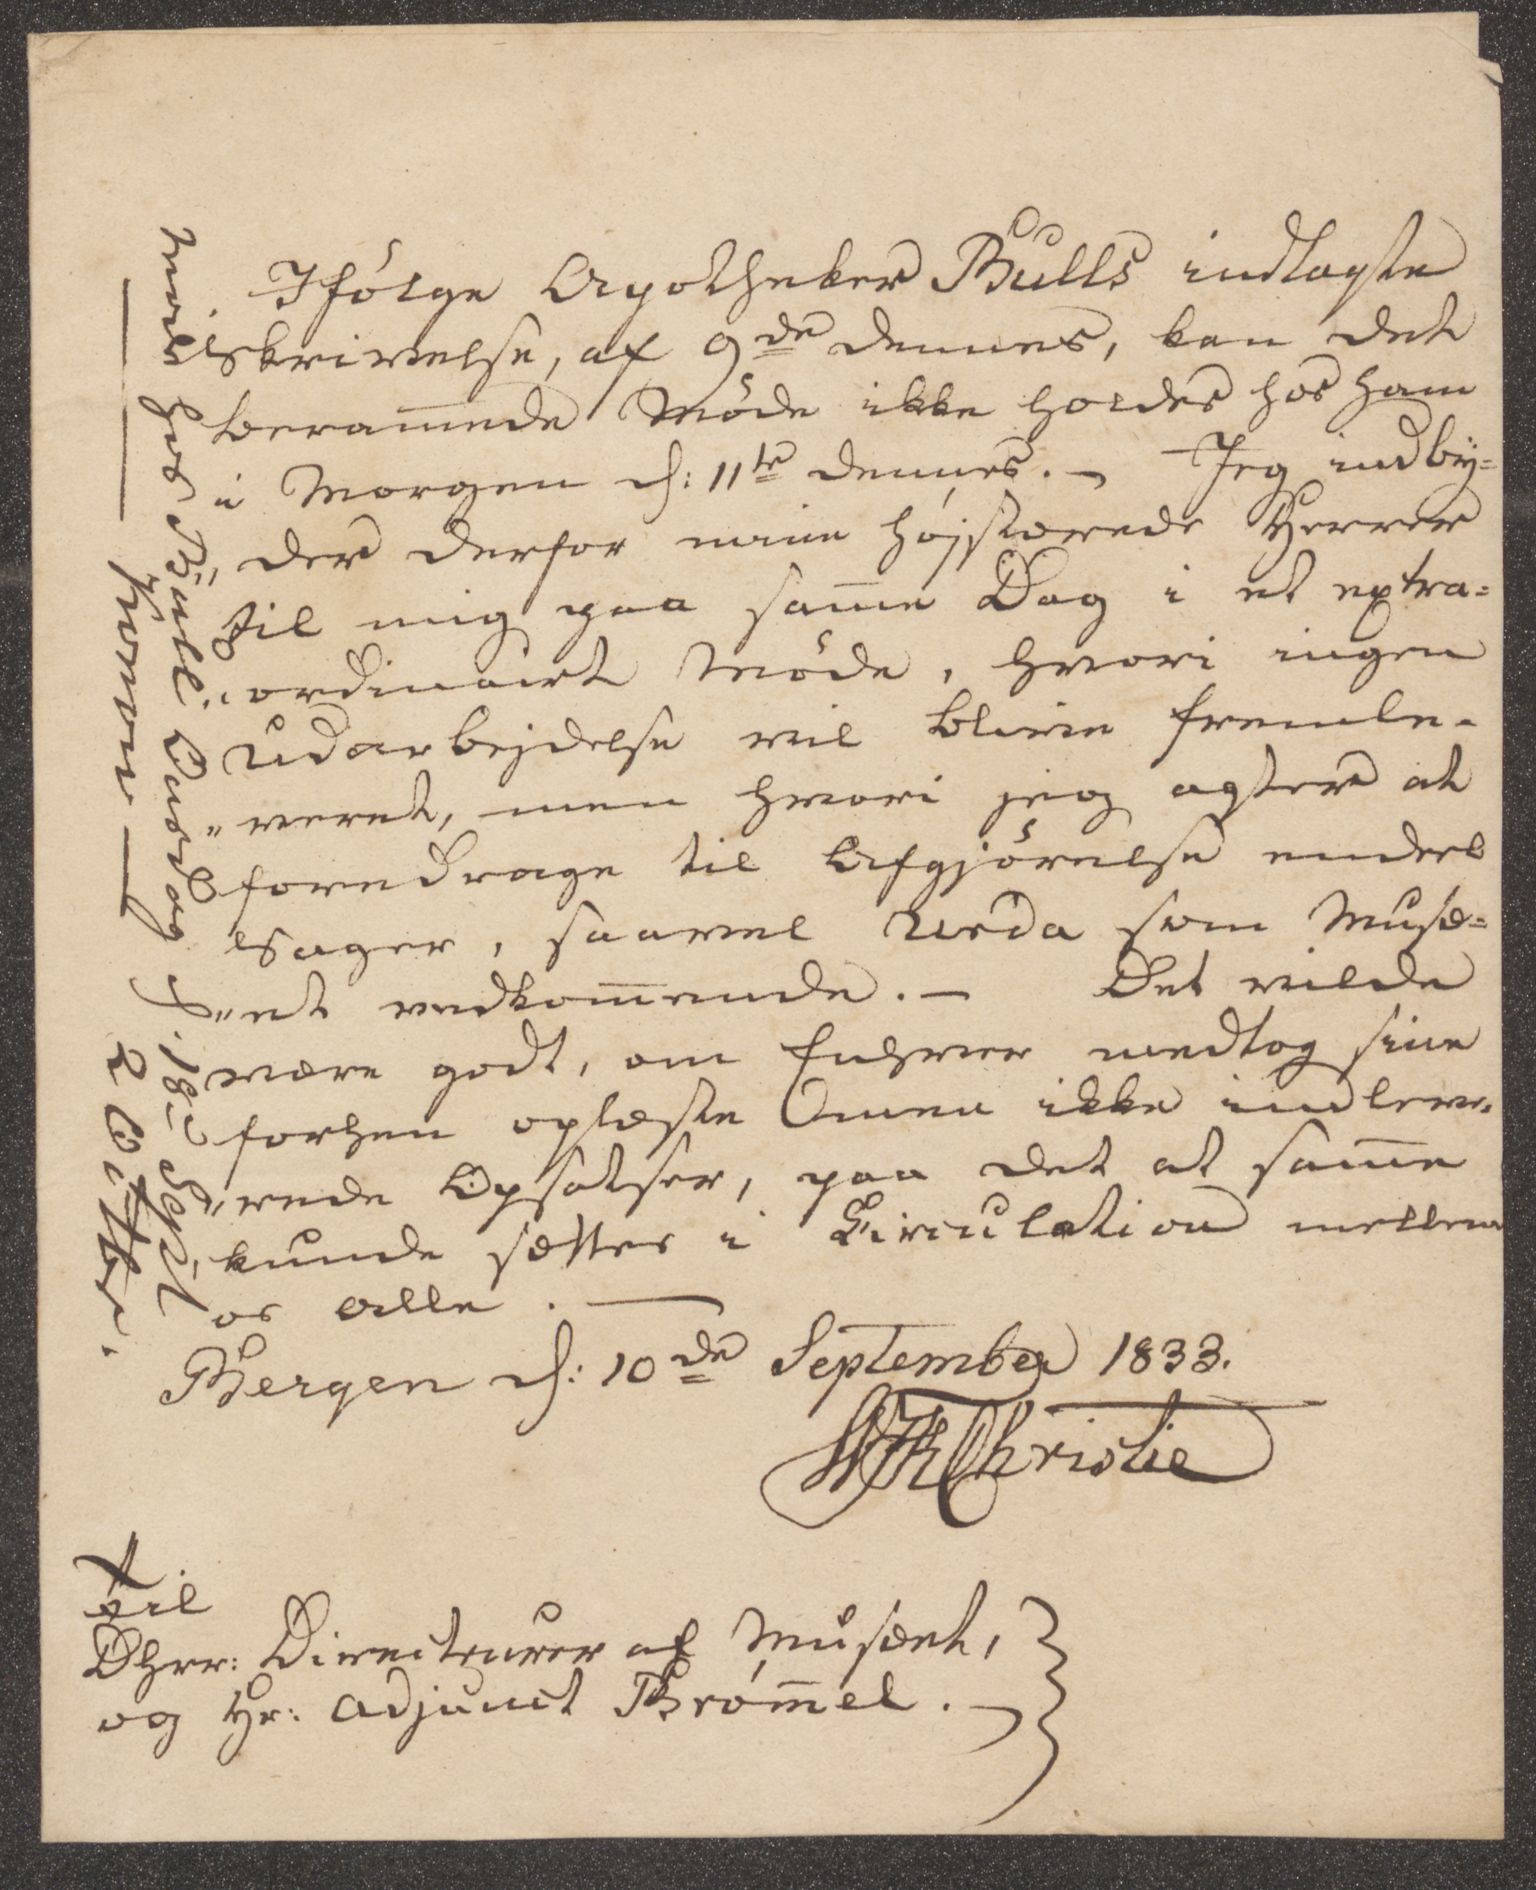 Ifölge Apotheker Bulls indlagte
Skrivelse, af 9de dennes, kan det
berammede Möde ikke holdes hos ham
i Morgen d: 11te dennes. – Jeg indby=
"der derfor mine højstærede Herrer
til mig paa samme Dag i et extra=
"ordinairt Möde, hvori ingen
Udarbejdelse vil blive fremle=
"veret, men hvori jeg agter at
foredrage til Afgjörelse endeel
Sager, saavel Urda som Musæ=
"et vedkommende. – Det vilde
være godt, om Enhver medtog sine
forhen oplæste Omen ikke indleve=
"rede Opsatser, paa det at samme
kunde sættes i Circulation mellem
os alle. —
Bergen d: 10de September 1833.
WFKChristie
Til
Dhrr: Directeurer af Musæet,
og Hr: Adjunct Brömmel. –
Möde hos Bull Onsdag d. 18de Sept
— Konow — 2 Octbr.